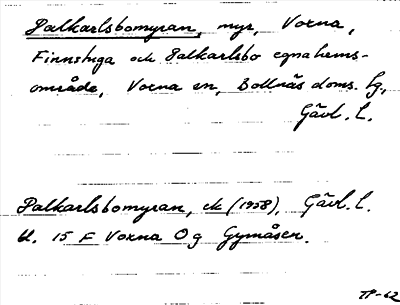 Palkarlsbomyran, myr, Voxna,
Finnstuga och Palkarlsbo egnahems-
område, Voxna sn, Bollnäs doms. tg.,
Gävl. l.
Palkarlsbomyran, ek (1958), Gävl. l.
bl. 15 F Voxna Og Gymåsen.
TP-62